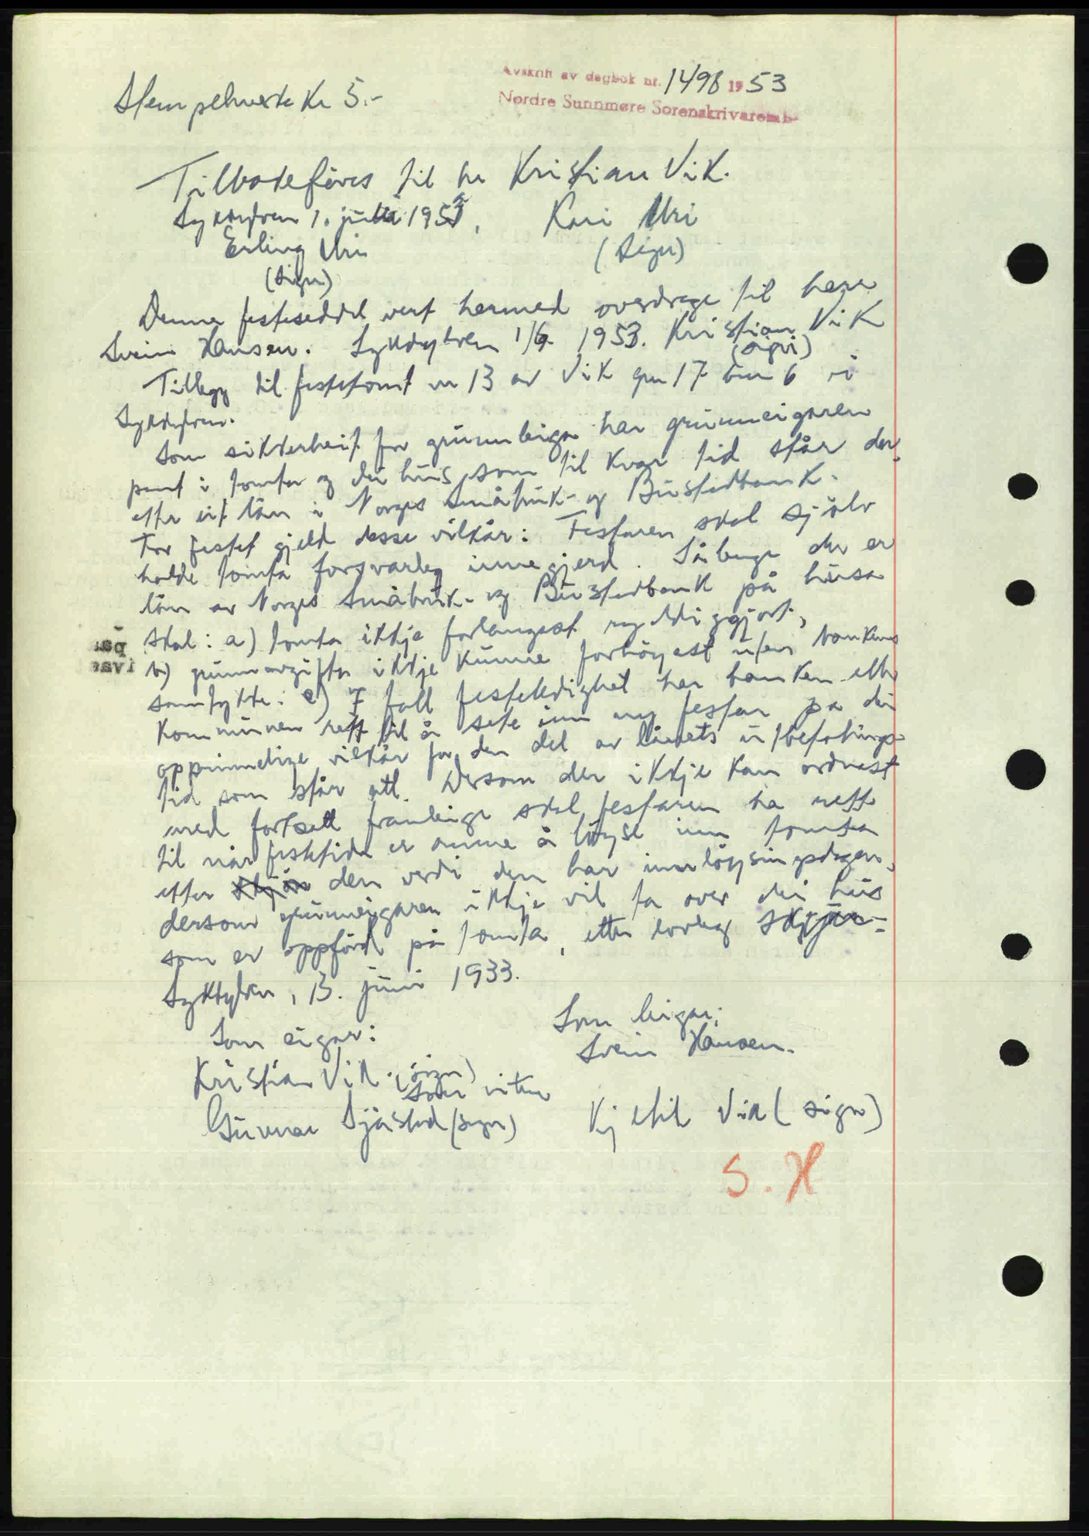 Avskrift av dagbok nr. 1498 1953
Nordre Sunnmøre Sorenskrivaremb
Stempelmerke Kr 5.-
Tilbakeføres til hr Kristian Vik.
Sykkylven 1. juni 1953, Kari Uri
Erling Uri (sign)
(sign)
Denne festeseddel vert hermed overdrege til herr
Svein Hansen. Sykkylven 1/6 1953. Kristian Vik
(sign)
Tillegg til festetomt nr 13 av Vik gnr 17 bnr 6 i
Sykkylven.
Som sikkerheit for grunnleiga har grunneigaren
pant i tomta og dei hus som til kvar tid står der
etter eit lån i Norges Småbruk- og Bustadbank.
For festet gjeld desse vilkår: Festaren skal sjølv
halde tomta forsvarleg innegjerd. Så lenge der er
lån av Norges Småbruk- og Bustadbank på husa
skal: a) tomta ikkje forlangast ryddiggjort,
b) grunnavgifta ikkje kunne forhøyest uten bankens
samtykke: c) I fall festeledighet har banken eller
kommunen rett til å sete inn ny festar på dei
opprinnelige vilkår for den del av lånets utbetalings-
tid som står att. Dersom der ikkje kan ordnast
med fortsatt framleige skal festaren ha rett
til når festetida er omme å løyse inn tomta
etter den verdi den har innløysingsdagen,
dersom grunneigaren ikkje vil ta over dei hus
som er oppført på tomta, etter lovleg skjøn.-
Sykkylven, 13. juni 1933.
Som eigar: Som leigar:
Kristian Vik. (sign) Svein Hansen.
Som vitne
Gunnar Sjåstad (sign) Kjetil Vik (sign)
S. H